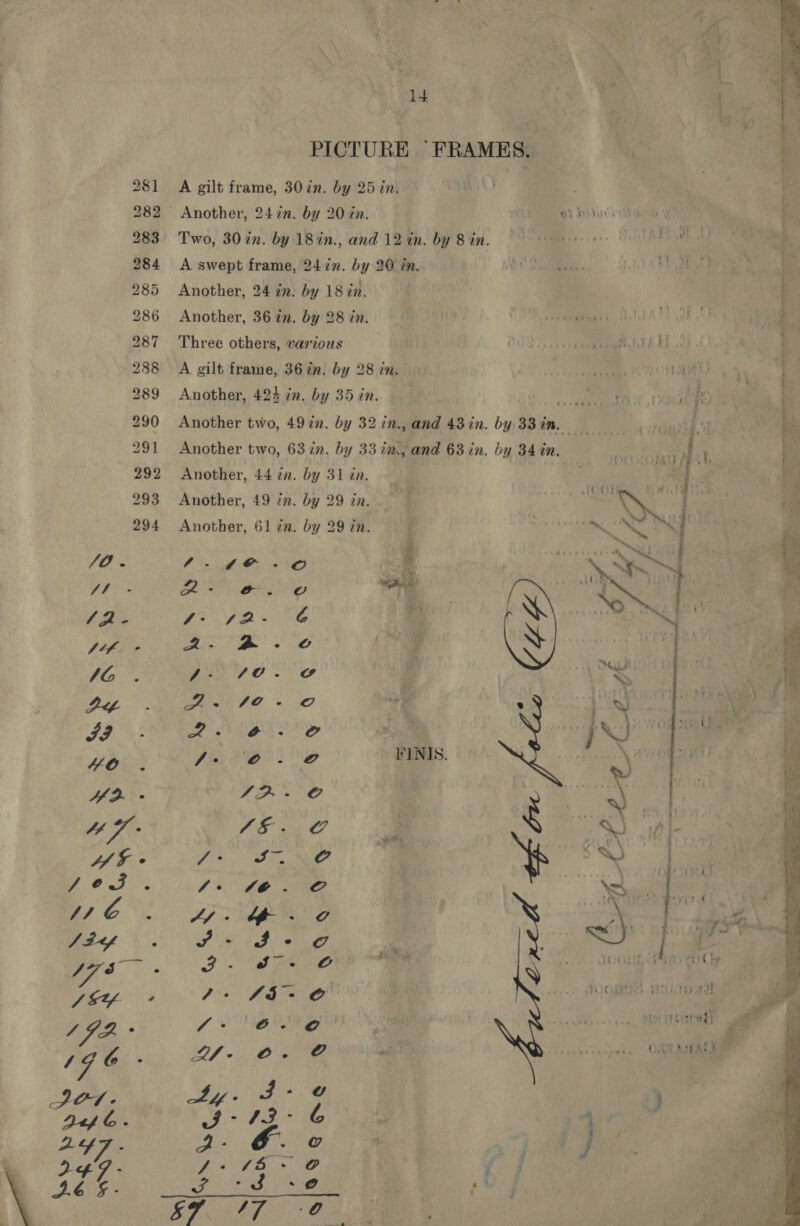 14
PICTURE FRAMES.
281 A gilt frame, 30 in. by 25 in.
282 Another, 24 in. by 20 in.
283 Two, 30 in. by 18 in., and 12 in. by 8 in.
284 A swept frame, 24 in. by 20 in.
285 Another, 24 in. by 18 in.
286 Another, 36 in. by 28 in.
287 Three others, various
288 A gilt frame, 36 in. by 28 in.
289 Another, 42½ in. by 35 in.
290 Another two, 49 in. by 32 in., and 43 in. by 33 in.
291 Another two, 63 in. by 33 in., and 63 in. by 34 in.
292 Another, 44 in. by 31 in.
293 Another, 49 in. by 29 in.
294 Another, 61 in. by 29 in.
10 - 1 - 10 - 0
11 - 2 - 0 - 0
12 - 1 - 12 - 6
14 - 2 - 2 - 0
16 - 1 - 10 - 0
24 - 2 - 10 - 0
33 - 2 - 0 - 0
40 - 1 - 0 - 0
42 - 12 - 0
47 - 18 - 0
48 - 1 - 5 - 0
103 - 1 - 10 - 0
116 - 4 - 4 - 0
134 - 3 - 3 - 0
175 - 3 - 5 - 0
184 - 1 - 15 - 0
192 - 1 - 0 - 0
196 - 0 - 0
201 - 3 - 0
246 - 3 - 13 - 6
247 - 2 - 6 - 0
249 - 1 - 18 - 0
3 - 3 - 0
17 - 0
FINIS.
Entered in folio